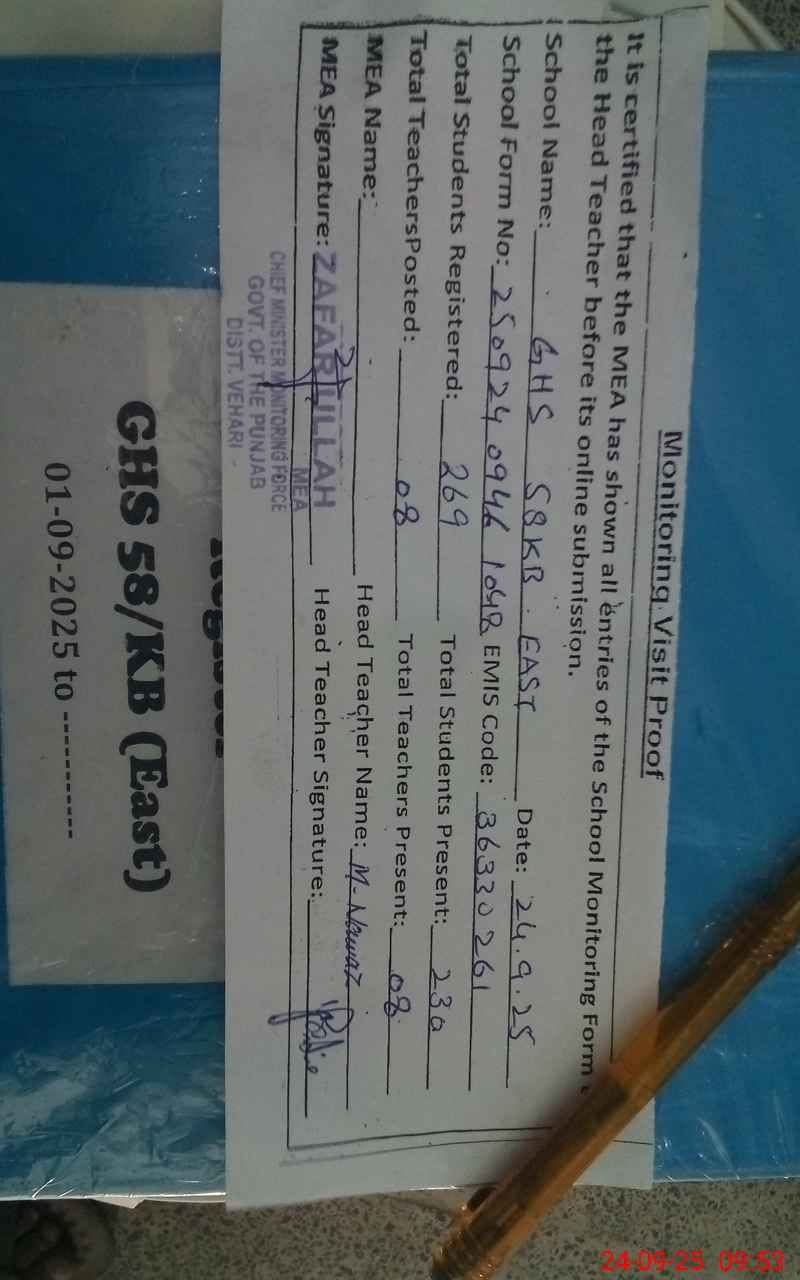 Monitoring Visit Proof
It is certified that the MEA has shown all entries of the School Monitoring Form
the Head Teacher before its online submission.
School Name: GHS 58KB. EAST Date: 24.9.25
School Form No: 250924 0946 1048 EMIS Code: 36330261
Total Students Registered: 269 Total Students Present: 230
Total TeachersPosted: 08 Total Teachers Present: 08
MEA Name: Head Teacher Name: M. Nawaz
MEA Signature: Head Teacher Signature:
ZAFAR ULLAH
MEA
CHIEF MINISTER MONITORING FORCE
GOVT. OF THE PUNJAB
DISTT. VEHARI -
GHS 58/KB (East)
01-09-2025 to -----------
24-09-25 09:53